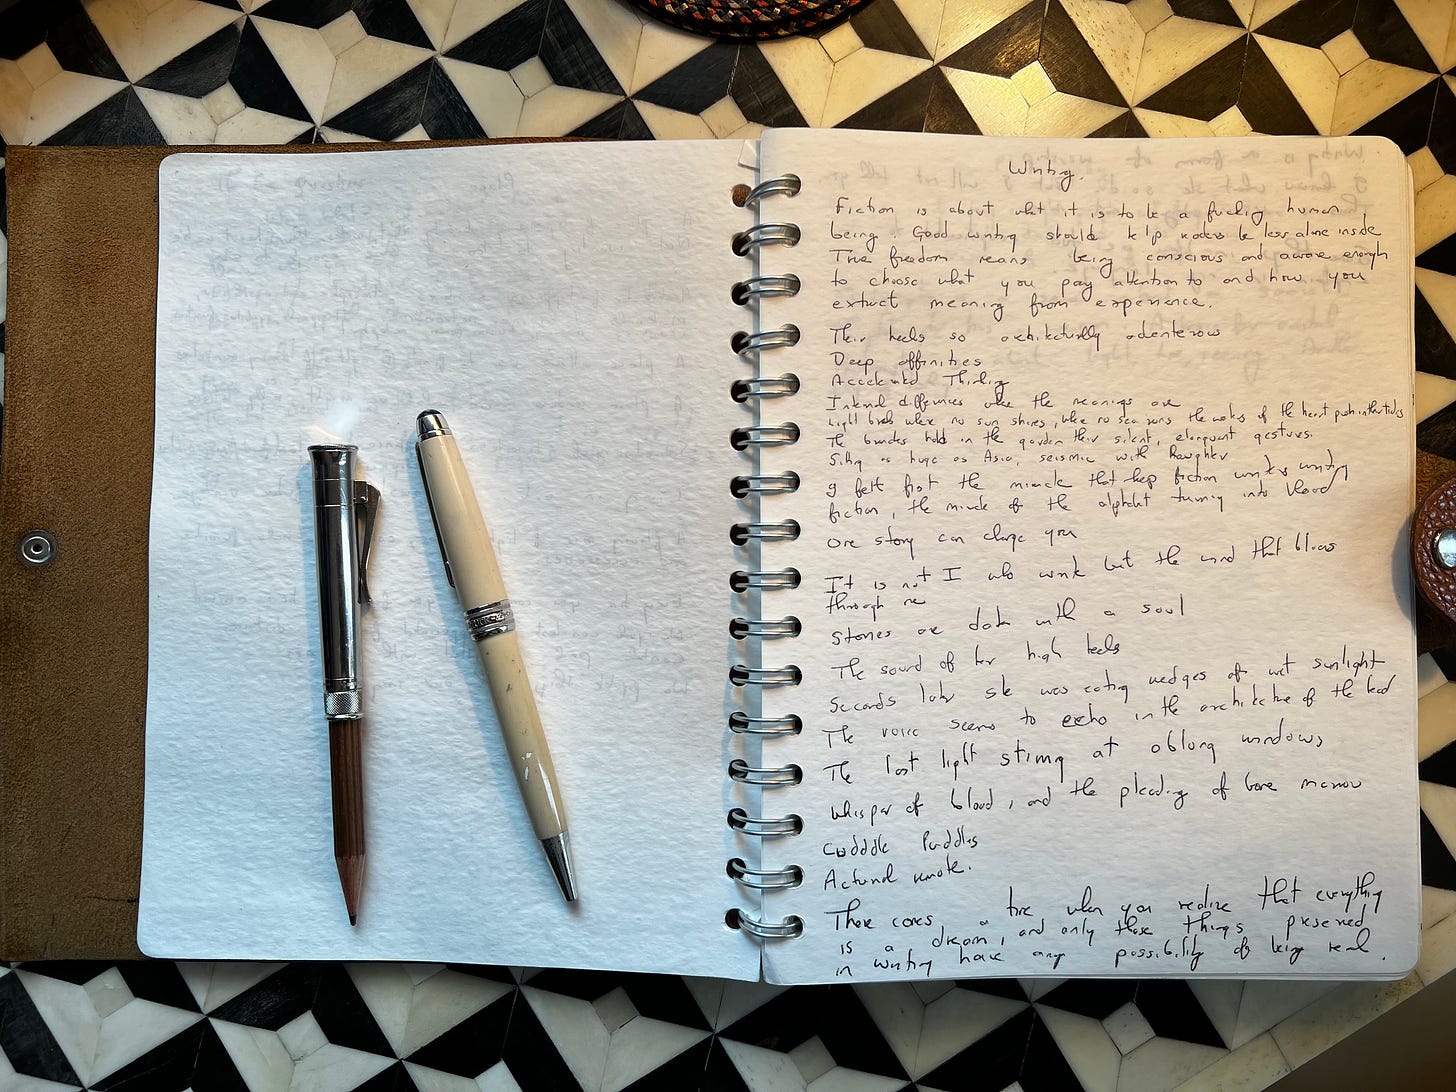 Writing.
Fiction is about what it is to be a fucking human
being. Good writing should help readers be less alone inside
True freedom means being conscious and aware enough
to choose what you pay attention to and how you
extract meaning from experience.
Their heels so architecturally
Deep affinities
Accelerated Thinking
Internal differences where the meanings are
Light breaks where no sun shines, where no sea runs the waters of the heart push in their tides
The branches hold in the garden their silent, eloquent gestures.
Sitting as huge as Asia, seismic with laughter
I felt first the miracle that keep fiction writers writing
fiction, the miracle of the alphabet turning into blood
One story can change you
It is not I who work but the wind that blows
through me
Stories are data with a soul
The sound of her high heels
Seconds later she was eating wedges of wet sunlight
The voice seems to echo in the architecture of the head
The last light at oblong windows
Whisper of blood, and the pleading of bone marrow
Cudddle Puddles
There comes a time when you realize that everything
is a dream, and only those things preserved
in writing have any possibility of being real.